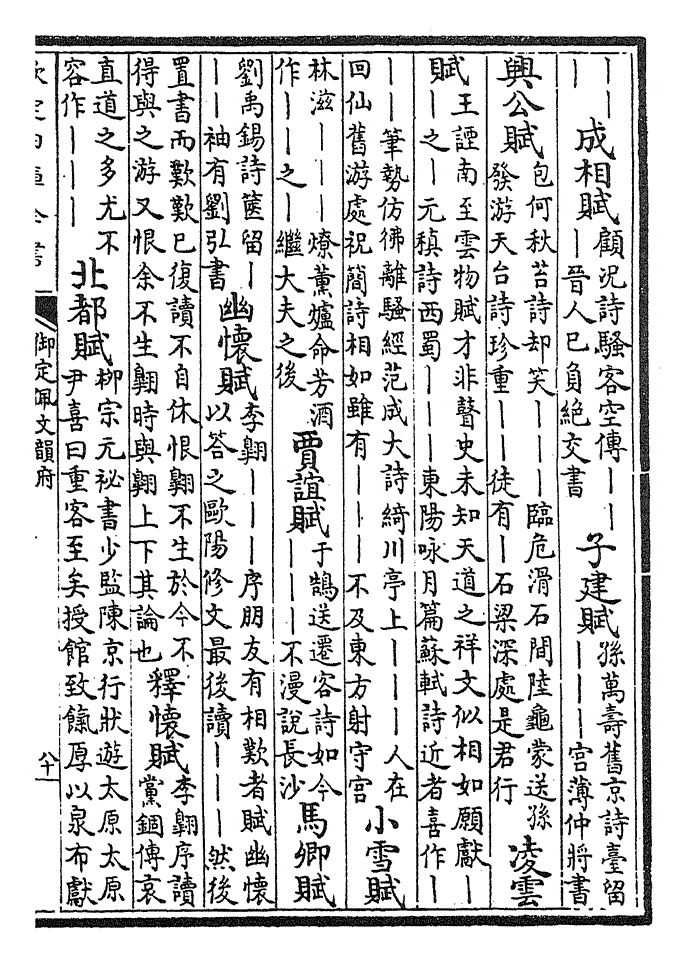 ｜｜
｜
成相賦
顧況詩騷客空傳｜｜
｜晉人已負絶交書
子建賦
孫萬壽舊京詩臺留
｜｜｜宮薄仲將書
興公賦
包何秋苔詩却笑｜｜｜臨危滑石間陸龜蒙送孫
發游天台詩珍重｜｜徒有｜石梁深處是君行
凌雲
賦
王諲南至雲物賦才非瞽史未知天道之祥文似相如願獻｜
｜之｜元稹詩西蜀｜｜｜東陽咏月篇蘇軾詩近者喜作｜
｜｜筆勢仿彿離騷經范成大詩綺川亭上｜｜｜人在
回仙舊游處祝簡詩相如雖有｜｜｜不及東方射守宮
小雪賦
林滋｜｜｜燎薰爐命芳酒
作｜｜｜之｜繼大夫之後
賈誼賦
于鵠送遷客詩如今
｜｜｜｜不漫說長沙
馬卿賦
劉禹錫詩篋留｜
｜｜袖有劉弘書
幽懷賦
李翺｜｜｜序朋友有相歎者賦幽懷
以答之歐陽修文最後讀｜｜｜然後
置書而歎歎已復讀不自休恨翺不生於今不
得與之游又恨余不生翺時與翺上下其論也
釋懷賦
李翺序讀
黨錮傳哀
直道之多尤不
容作｜｜｜
北都賦
柳宗元祕書少監陳京行狀遊太原太原
尹喜曰重客至矣授館致餼厚以泉布獻
欽定四庫全書
御定佩文韻府
八十